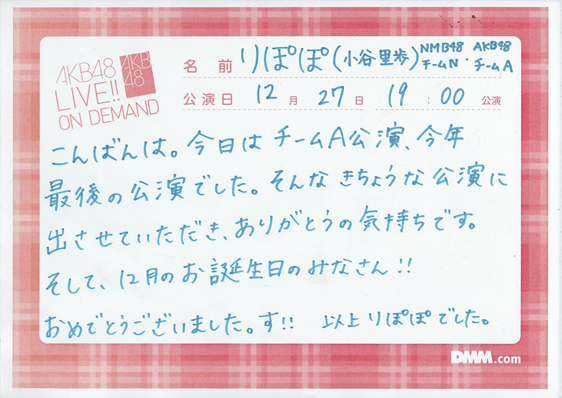 AKB48
LIVE!!
ON DEMAND
AKB
48
名 前 りぽぽ(小谷里歩) NMB48 チームN・AKB48 チームA
公演日 12月27日 19:00 公演
こんばんは。今日はチームA公演、今年
最後の公演でした。そんなきちょうな公演に
出させていただき、ありがとうの気持ちです。
そして、12月のお誕生日のみなさん!!
おめでとうございました。す!! 以上りぽぽでした。
DMM.com